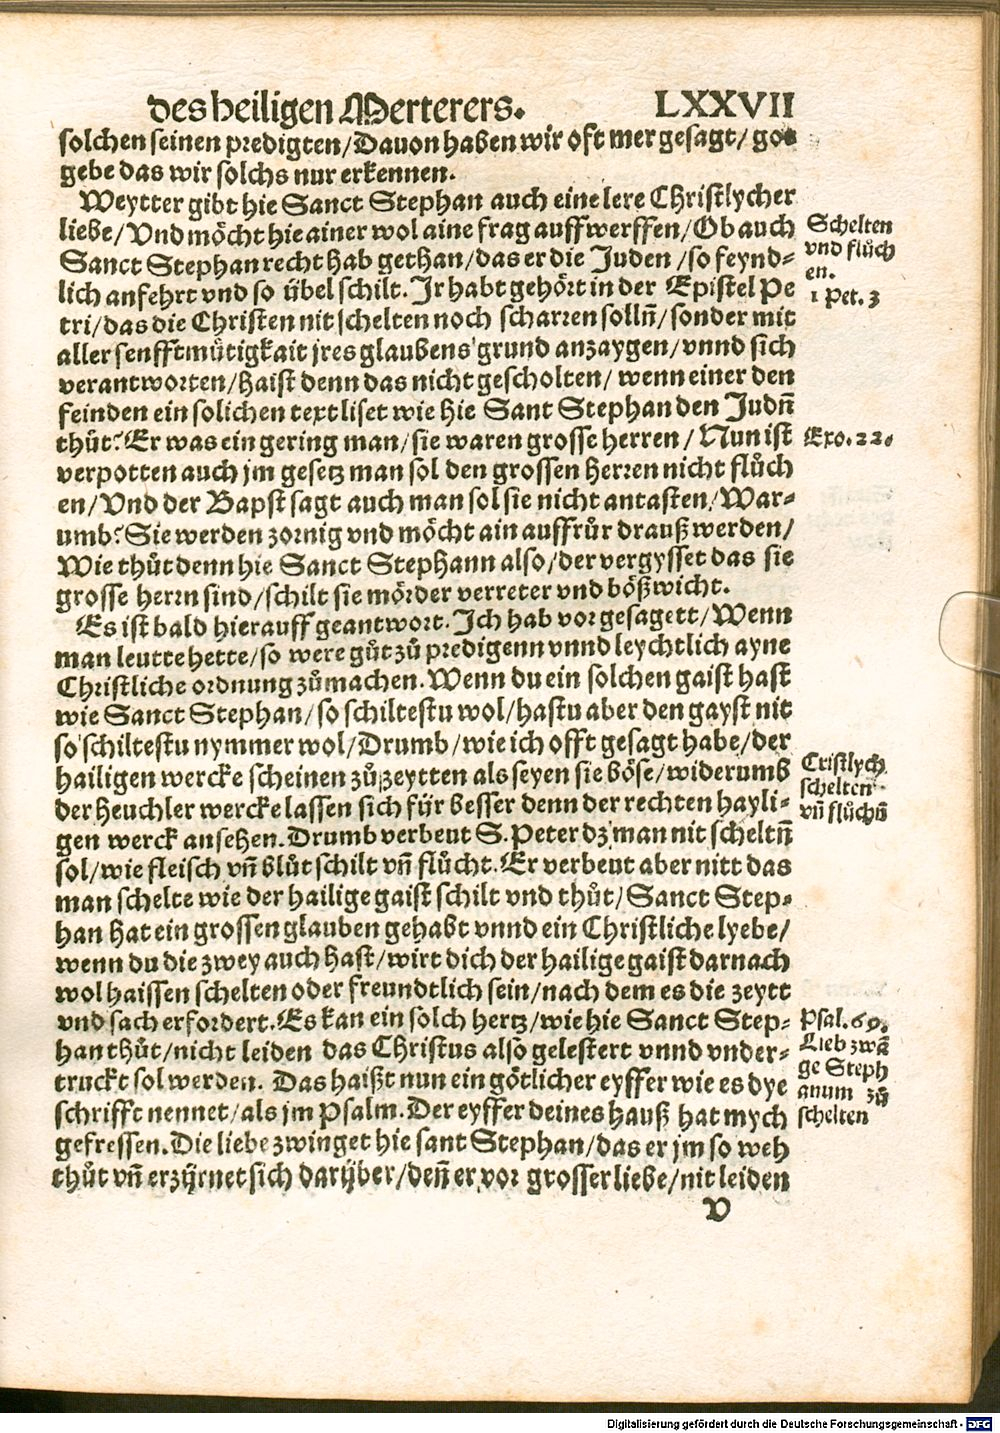 des heiligen Merterers. LXXVII
solchen seinen predigten/Dauon haben wir oft mer gesagt/ got
gebe das wir solchs nur erkennen.
Weytter gibt hie Sanct Stephan auch eine lere Christlycher
liebe/Vnd möcht hie ainer wol aine frag auffwerffen/Ob auch
Sanct Stephan recht hab gethan/das er die Juden /so feynd-
lich anfehrt vnd so übel schilt. Jr habt gehört in der Epistel Pe
tri/das die Christen nit schelten noch scharren solln̄/sonder mit
aller senfftmütigkait jres glaubens grund anzaygen/vnnd sich
verantworten/haist denn das nicht gescholten/ wenn einer den
feinden ein solichen text liset wie hie Sant Stephan den Judn̄
thůt? Er was ein gering man/sie waren grosse herren/ Nun ist
verpotten auch jm gesetz man sol den grossen herren nicht flůch
en/Vnd der Bapst sagt auch man sol sie nicht antasten/War-
umb? Sie werden zornig vnd möcht ain auffrůr drauß werden/
Wie thůt denn hie Sanct Stephann also/der vergysset das sie
grosse herrn sind/schilt sie mörder verreter vnd bößwicht.
Es ist bald hierauff geantwort. Ich hab vor gesagett/Wenn
man leutte hette/so were gůt zů predigenn vnnd leychtlich ayne
Christliche ordnung zůmachen. Wenn du ein solchen gaist hast
wie Sanct Stephan/so schiltestu wol/hastu aber den gayst nit
so schiltestu nymmer wol/Drumb/wie ich offt gesagt habe/der
hailigen wercke scheinen zůzeytten als seyen sie böse/widerumb
der heuchler wercke lassen sich für besser denn der rechten hayli-
gen werck ansehen. Drumb verbeut S. Peter dz man nit scheltn̄
sol/wie fleisch vn̄ blůt schilt vn̄ flůcht. Er verbeut aber nitt das
man schelte wie der hailige gaist schilt vnd thůt/Sanct Step-
han hat ein grossen glauben gehabt vnnd ein Christliche lyebe/
wenn du die zwey auch hast/wirt dich der hailige gaist darnach
wol haissen schelten oder freundtlich sein/nach dem es die zeytt
vnd sach erfordert. Es kan ein solch hertz/wie hie Sanct Step-
han thůt/nicht leiden das Christus also gelestert vnnd vnder-
truckt sol werden. Das haißt nun ein götlicher eyffer wie es dye
schrifft nennet/als jm Psalm. Der eyffer deines hauß hat mych
gefressen. Die liebe zwinget hie sant Stephan/das er jm so weh
thůt vn̄ erzürnet sich darüber/den̄ er vor grosser liebe/nit leiden
V
Schelten
vnd flůch
en.
1 Pet. 3
Exo. 22.
Cristlych
schelten
vn̄ flůchn̄
Psal. 69.
Lieb zwā
ge Steph
anum zů
schelten
Digitalisierung gefördert durch die Deutsche Forschungsgemeinschaft - DFG